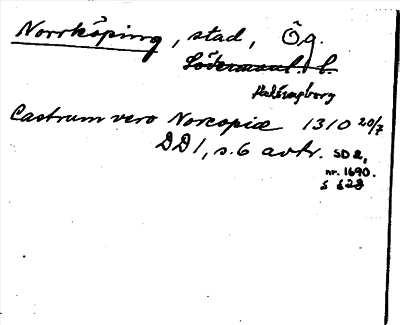 Norrköping, stad, Ög.
Södermanl. l.
Hälsingborg
Castrum vero Norcopiæ 1310 20/7
DD1, s. 6 avtr. SD2,
nr. 1690.
s 628